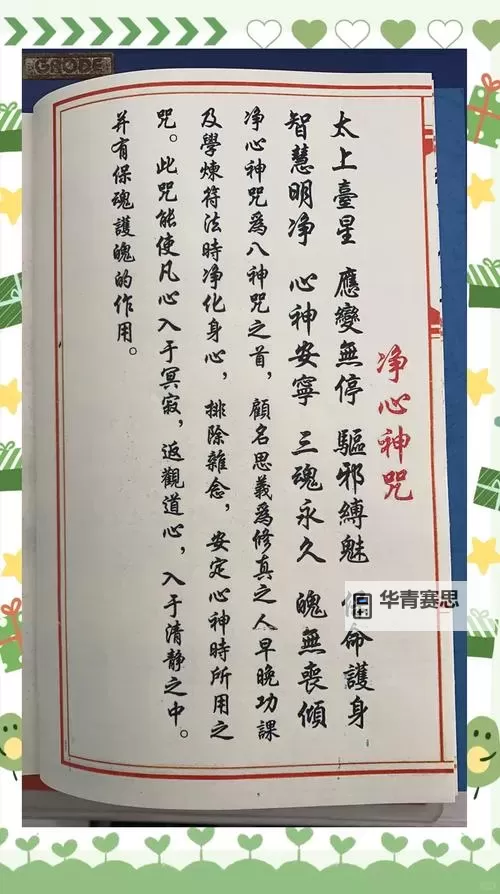 净心神咒
太上臺星 應變無停 驅邪縛魅 命護身
智慧明净 心神安寧 三魂永久 魄無喪傾
净心神咒爲八神咒之首，顧名思義爲修真之人早晚功課
及學煉符法時净化身心，排除雜念，安定心神時所用之
咒。此咒能使凡心入于冥寂，返觀道心，入于清静之中。
并有保魂護魄的作用。
华青赛思
GRODE